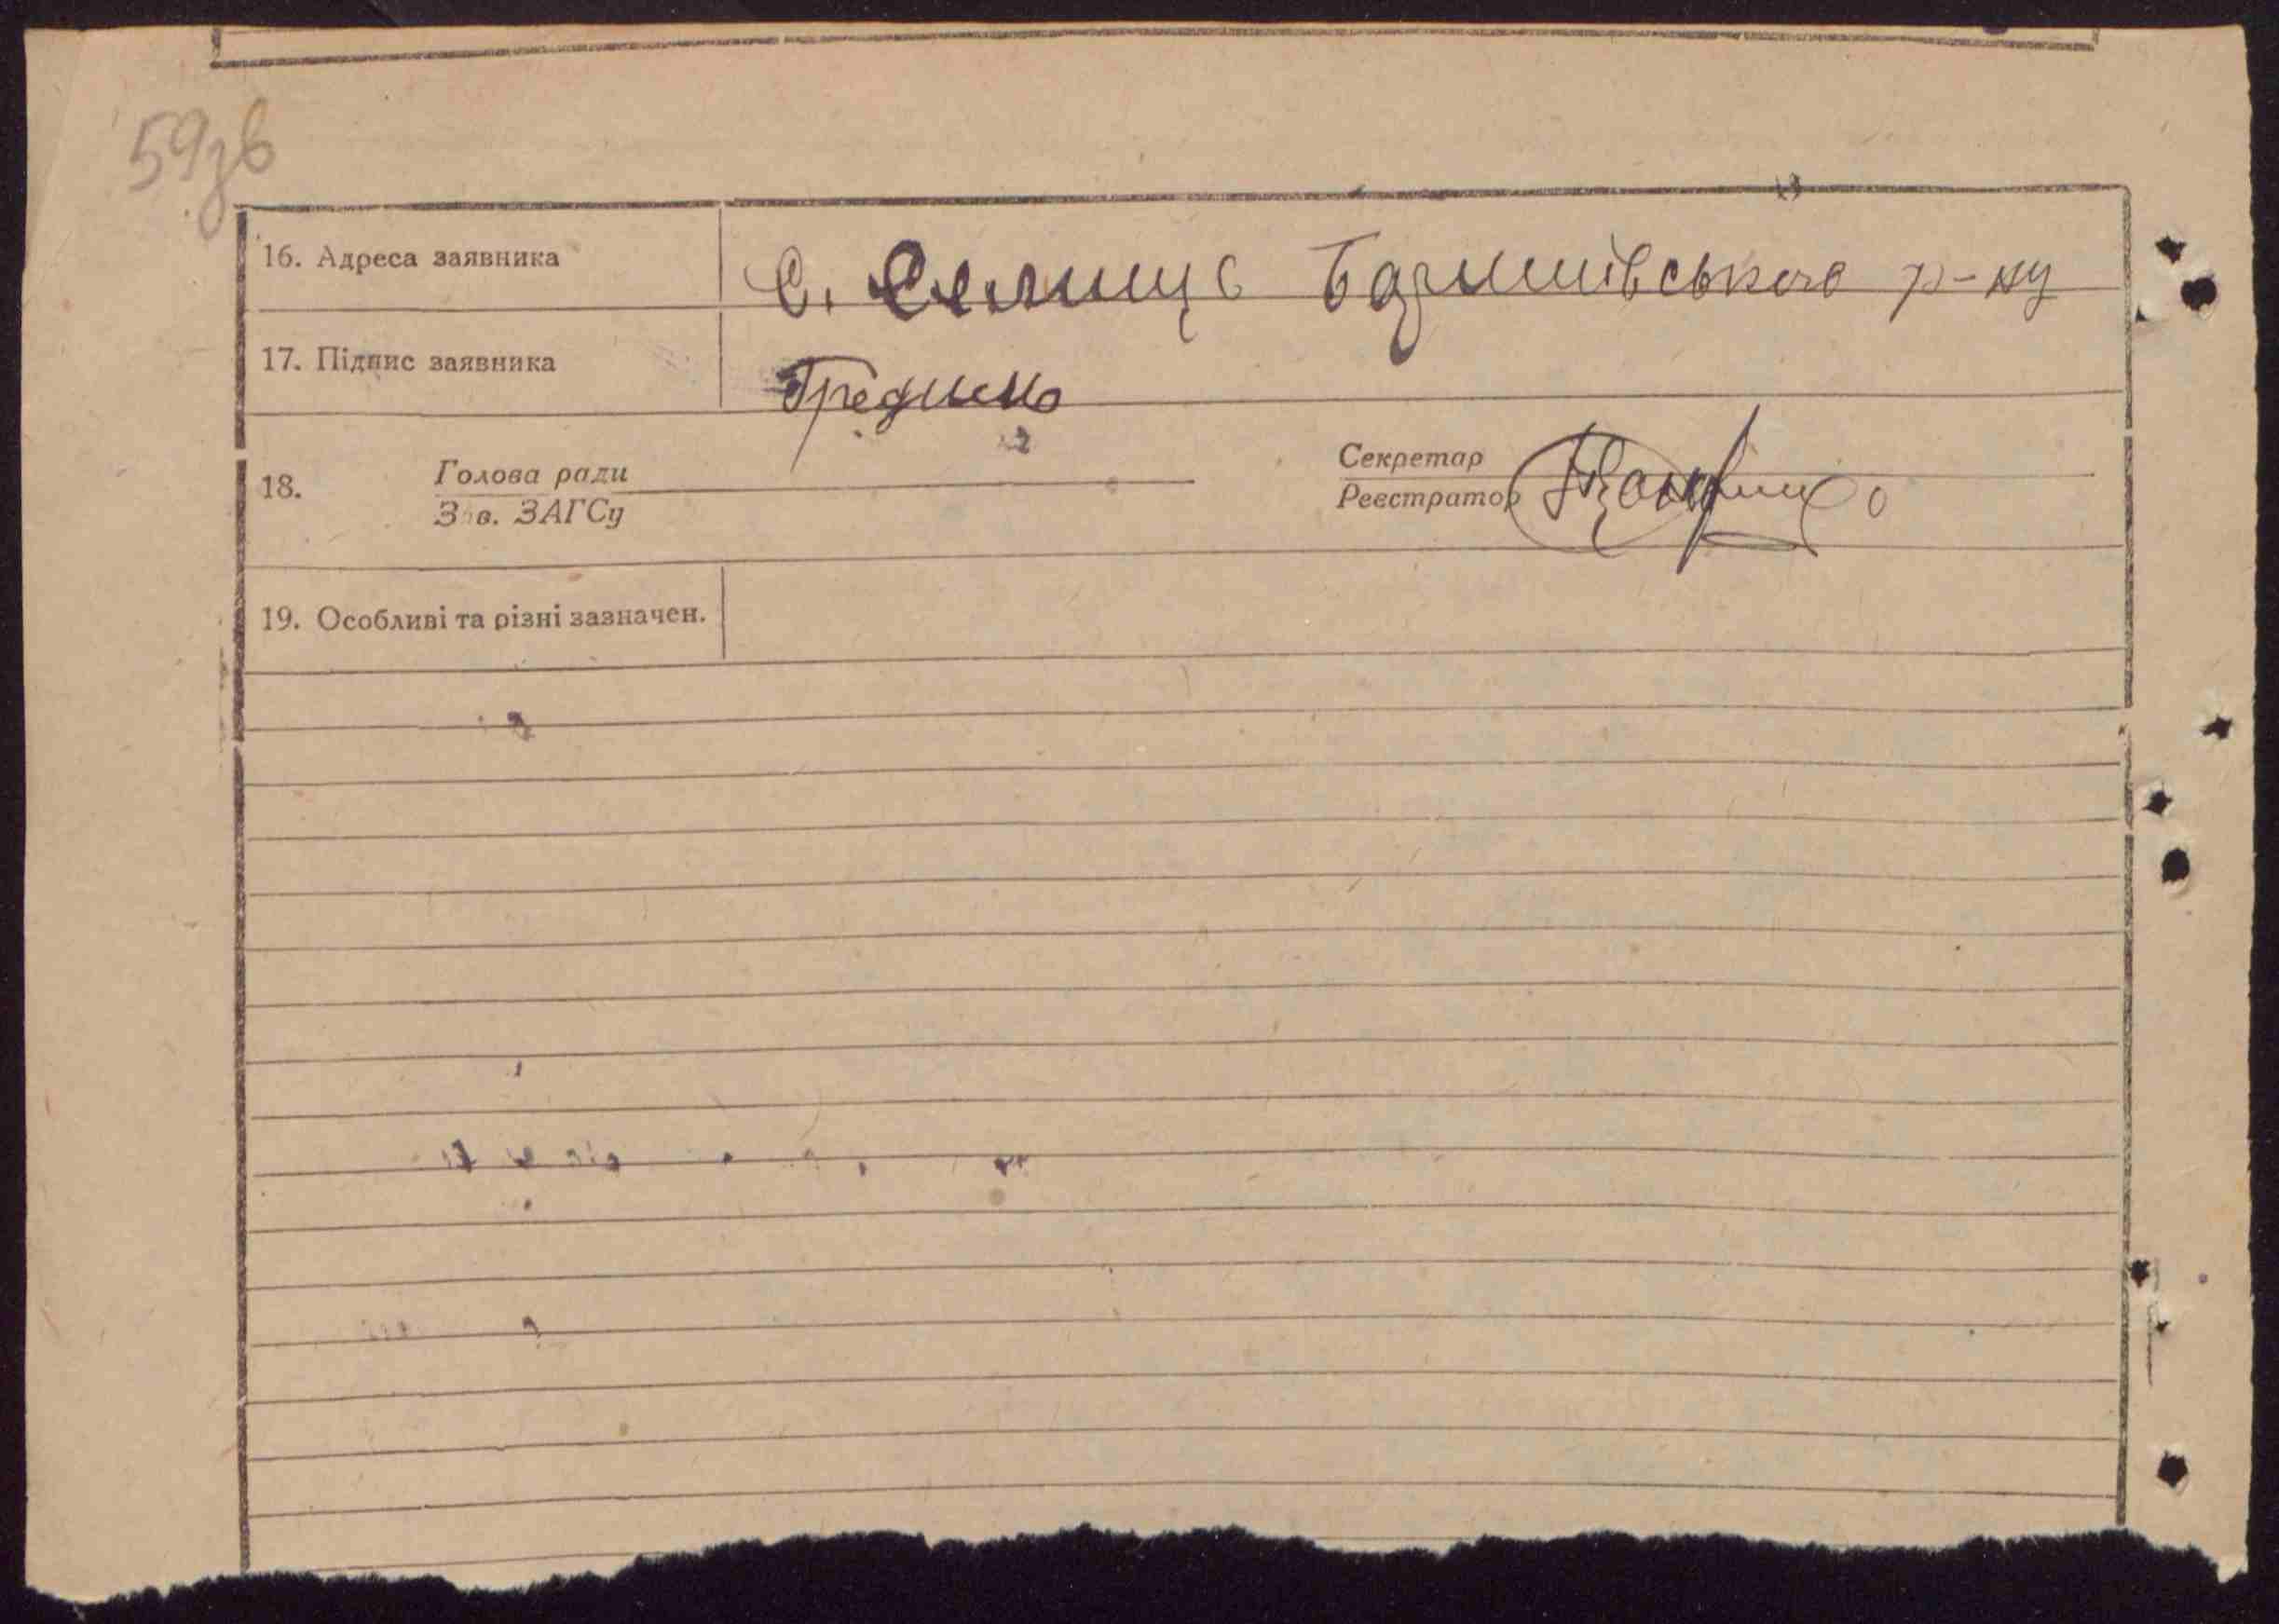 59зв
16. Адреса заявника с. Селище Баришівського р-ну
17. Підпис заявника Грединь
18. Голова ради Секретар
Зав. ЗАГСу Реєстратор
19. Особливі та різні зазначен.